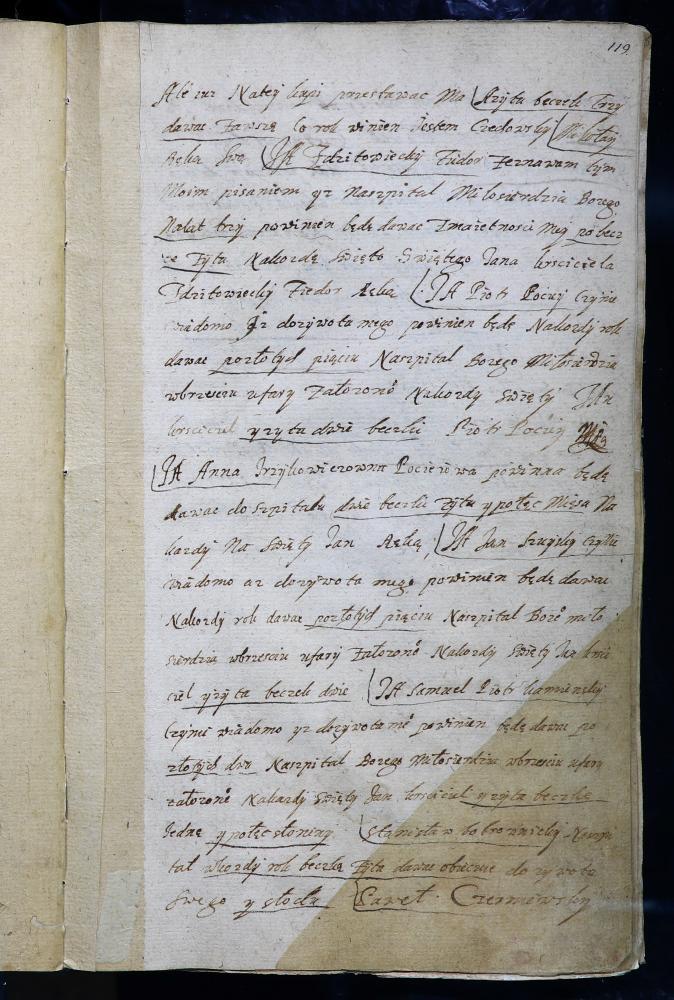 119
Ale iuz Natey kupi przestawac Ma Azyta beczek Trzy
dawac Zawszę Co rok winien Jestem Czedowsky Mikołay
Ręka Swą JA Zdzitowieckij Fiedor Zeznawam tym
Moim pisaniem yz Naszpital Miłosierdzia Bozego
Nalat trzy powinien będę dawac Zmaietnosci Mey pobecz
ce Zyta Nakozdę Swięto Swiętego Jana krsciciela
Zdzitowieckij Fiedor Ręką JA Piotr Pociey Czynie
wiadomo Jz dozywota mego powinien będę Nakozdy rok
dawac pozłotych pięciu Naszpital Bozego Miłosierdzia
wbrzesciu ufary Załozono Nakozdy Swięty JAn
krsciciel yzyta dwie beczki Piotr Pociey
JA Anna Pocieiowa powinna będę
dawac do szpitalu dwie beczki Zytu y połec Mięsa Na
kazdy Na Swięty Jan Ręką JA Jan Czynie
wiadomo az dozywota mego powinien będę dawac
Nakozdy rok dawac pozłotych pięciu Naszpital Bozo miło
sierdzia wbrzesciu ufary Załozono Nakozdy Swięty Jan krsci
ciel yzyta beczek dwie JA Samuel Piotr kamienskij
Czynie wiadomo yz dozywota mo powinien będę dawac po
złotych dwa Naszpital Bozego Miłosierdzia wbrzesciu ufary
załozono Nakazdy Swięty Jan krsciciel yzyta beczkę
Jednę y połec słoniny Stanisław bobrownickij Naszpi
tal wkozdy rok beczką Zyta dawac obiecuie do zywota
Swego y słodu Paweł Czerniewsky